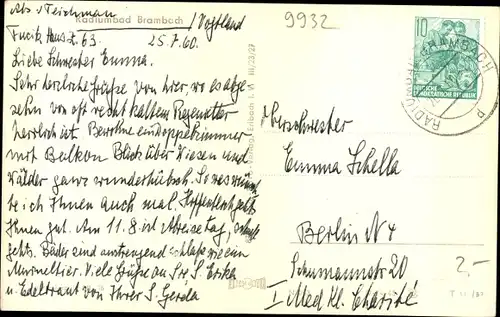 Abs. Teichman
Radiumbad Brambach
/Vogtland
Haus Z. 63. 25.7.60.
Liebe Schwester Emma.
Sehr herzliche Grüße von hier, wo es abge-
sehn von oft recht kaltem Regenwetter
herrlich ist. Bewohne ein Doppelzimmer
mit Balkon Blick über Wiesen und
Wälder ganz wunderhübsch. So was wünsch
te ich Ihnen auch mal. Hoffentlich geht's
Ihnen gut. Am 11.8. ist Abreisetag,
gehts. Bäder sind anstrengend schlafe wie ein
Murmeltier. Viele Grüße an Sr. S. Erika
u Edeltraut von Ihrer S. Gerda
9932
10
DEUTSCHE
DEMOKRATISCHE REPUBLIK
RADIUMBAD BRAMBACH
Oberschwester
Emma Schella
Berlin N 4
Schumannstraße 20
I Med Kl. Charité
2.-
III/23/27